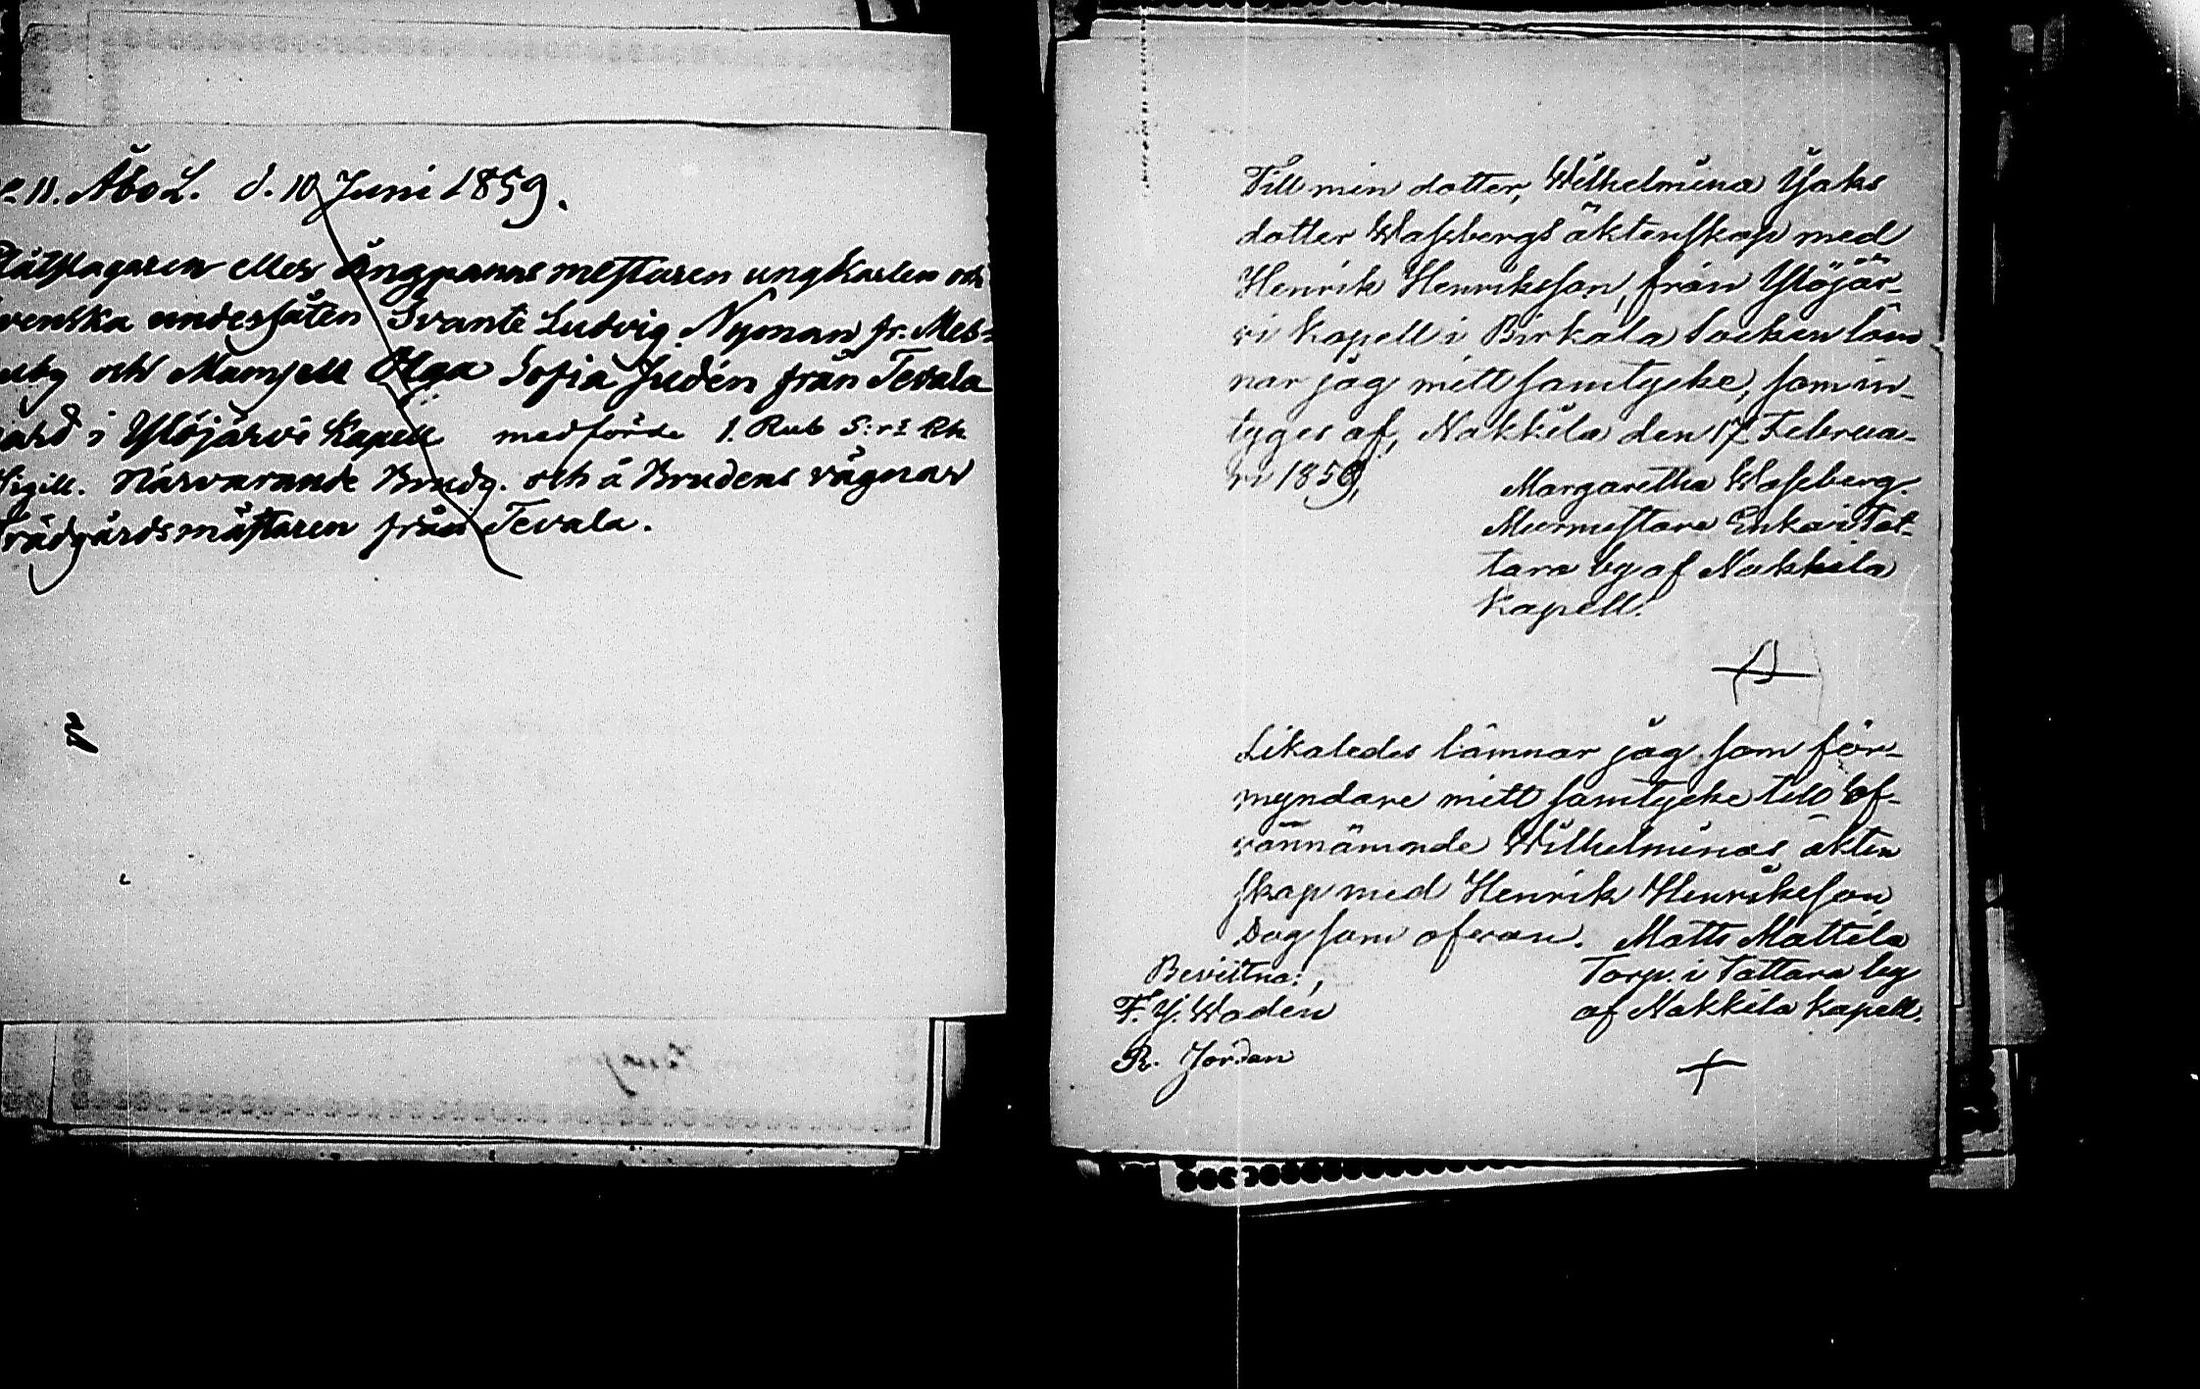 11. Åbo L. d. 10 Juni 1859.
eller Ångpanne mestaren ungkarlen och
undersåten Svante Ludvig Nyman fr. Mes-
uby och Mamsell Olga Sofia Judén från Tevala
gård i Ylöjärvi Kapell medförde 1. Rub S:r
Sigill. Närvarande Brudg. och å Brudens vägnar
Trädgårdsmästaren från Tevala.
Till min dotter, Wilhelmina Jaks
dotter Wassbergs äktenskap med
Henrik Henriksson, från Ylöjär-
vi Kapell i Birkala Socken läm
nar jag mitt samtycke, som in-
tyges af, Nakkila den 17 Februa-
ri 1859,
Margaretha Wassberg.
Murmestare Enka i Tat-
tara by af Nakkila
Kapell.
Likaledes lämnar jag som för-
myndare mitt samtycke till of-
vannämnde Wilhelminas äkten
skap med Henrik Henriksson
Dag som ofvan. Matts Mattila
Bevittna:, Torp. i Tattara by
F. J. Wadén af Nakkila Kapell.
R. Jordan